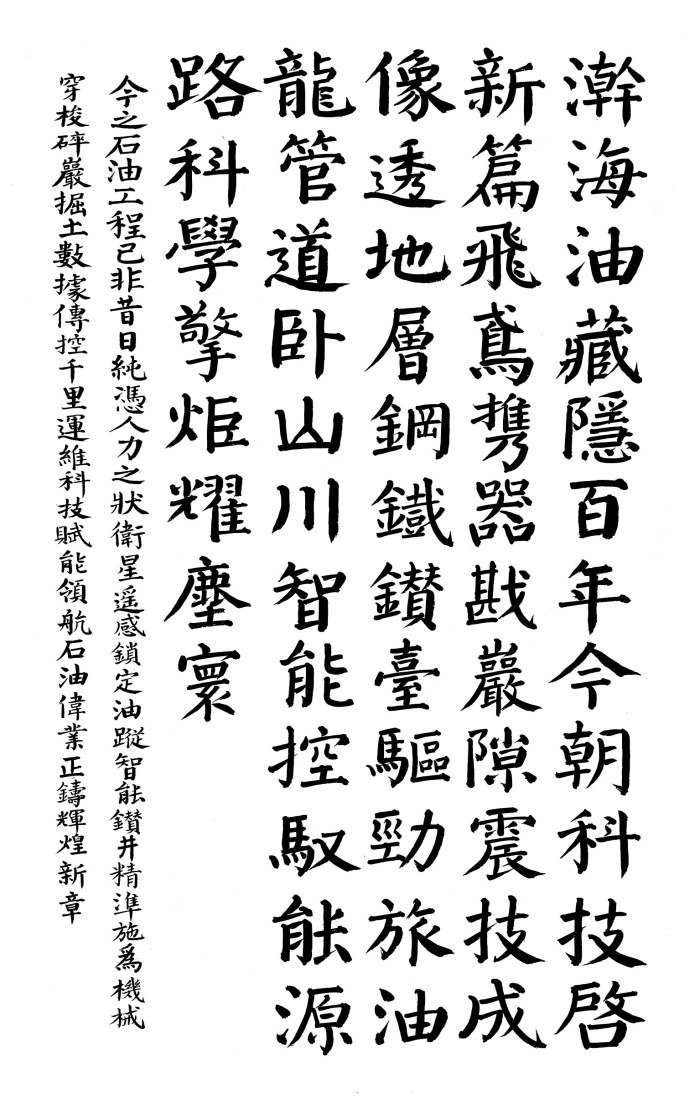 瀚海油藏隱百年今朝科技啓
新篇飛鳶携器戡巖隙震技成
像透地層鋼鐵鑚臺驅勁旅油
龍管道卧山川智能控馭能源
路科學擎炬耀塵寰
今之石油工程已非昔日純憑人力之狀衛星遥感鎖定油蹤智能鑚井精準施爲機械
穿梭碎巖掘土數據傳控千里運維科技賦能領航石油偉業正鑄輝煌新章